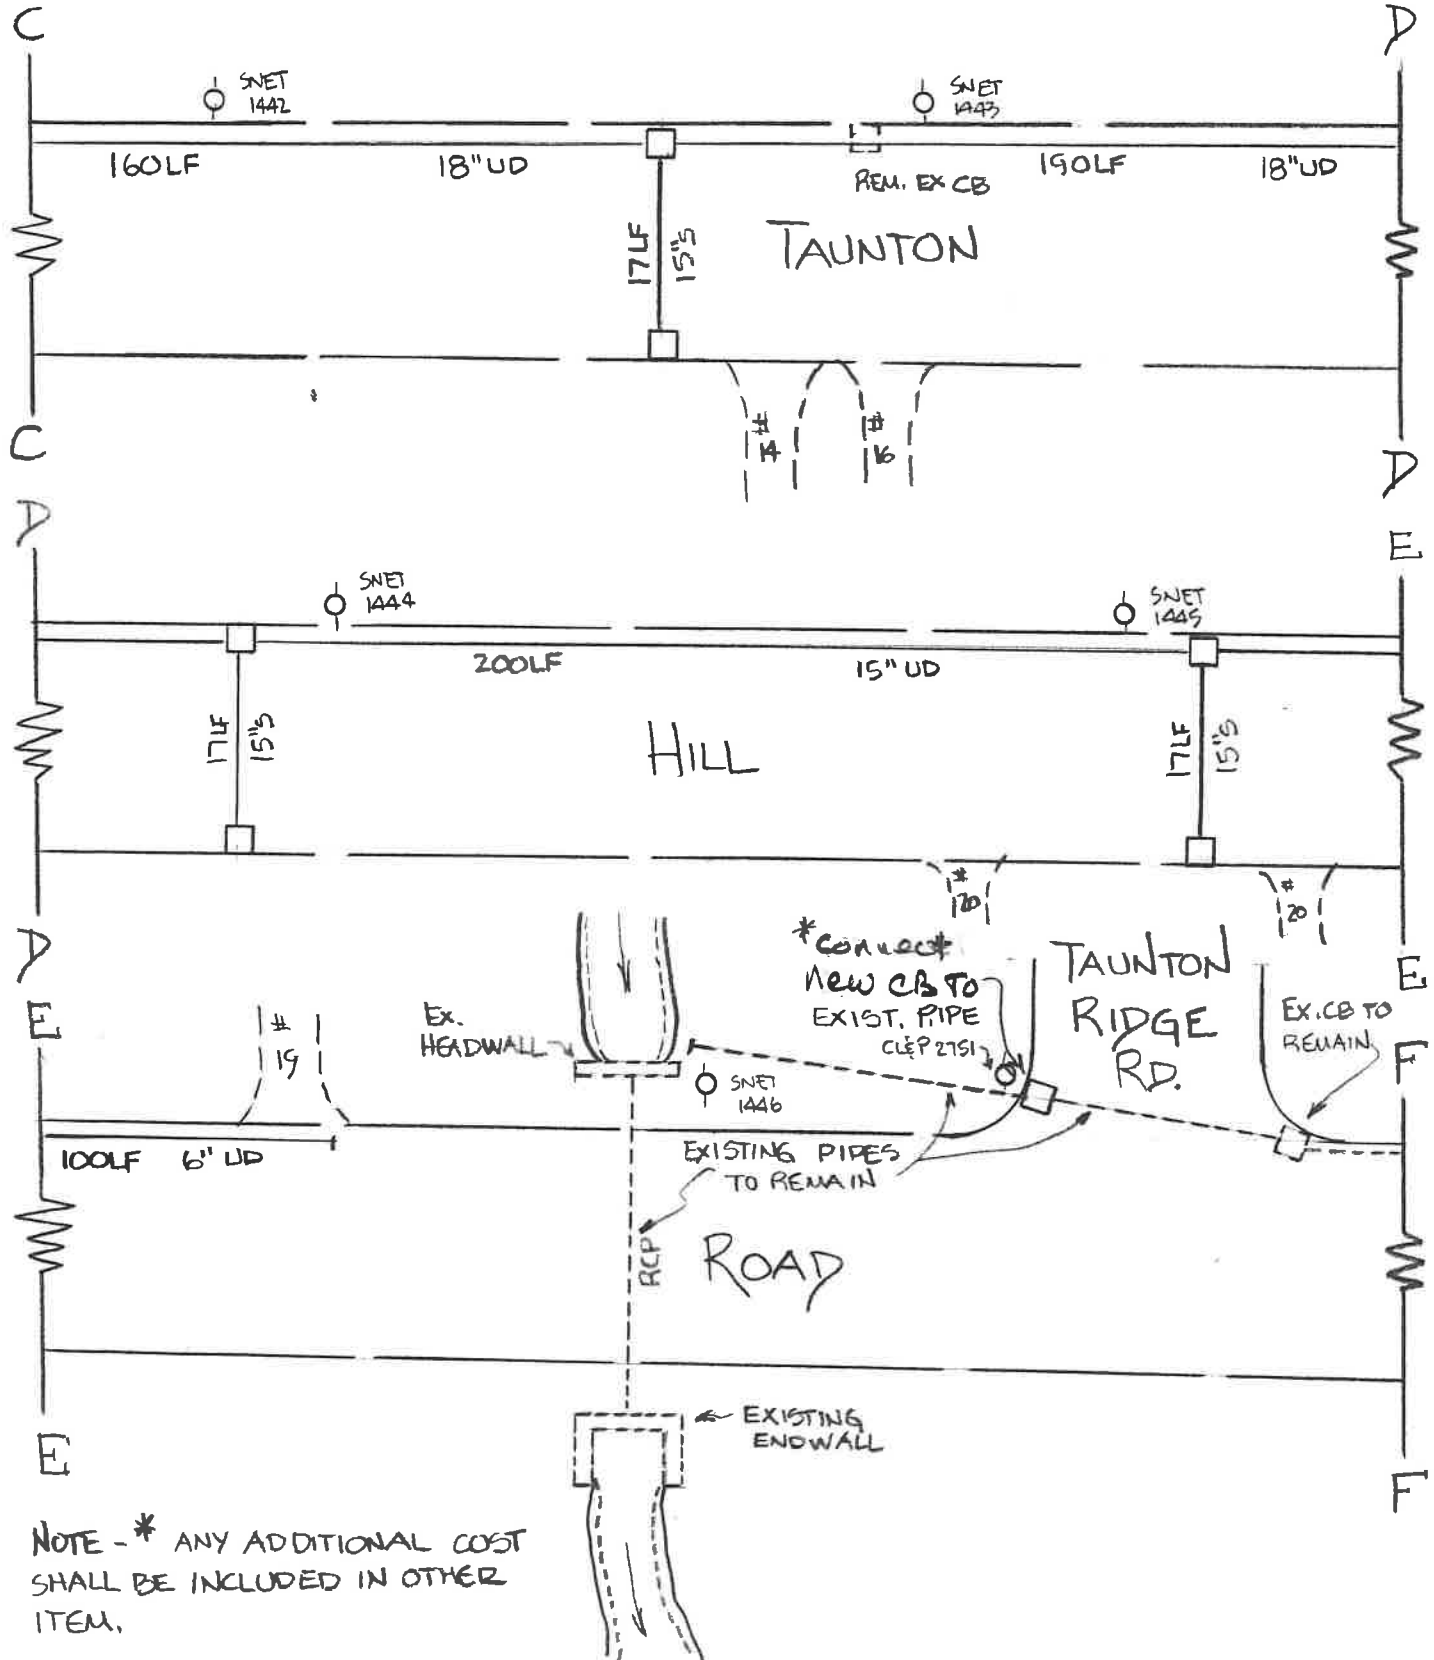 C
D
SNET
1442
SNET
1443
160LF
18" UD
REM. EX CB
190LF
18" UD
17LF
15"S
TAUNTON
#
14
#
16
C
D
D
E
SNET
1444
SNET
1445
200LF
15" UD
17LF
15"S
HILL
17LF
15"S
#
120
#
20
D
E
E
F
*connect
New CB TO
EXIST. PIPE
CL&P 2751
TAUNTON
RIDGE
RD.
EX. CB TO
REMAIN
#
19
EX.
HEADWALL
SNET
1446
100LF
6" UD
EXISTING PIPES
TO REMAIN
RCP
ROAD
EXISTING
ENDWALL
E
F
NOTE - * ANY ADDITIONAL COST
SHALL BE INCLUDED IN OTHER
ITEM.